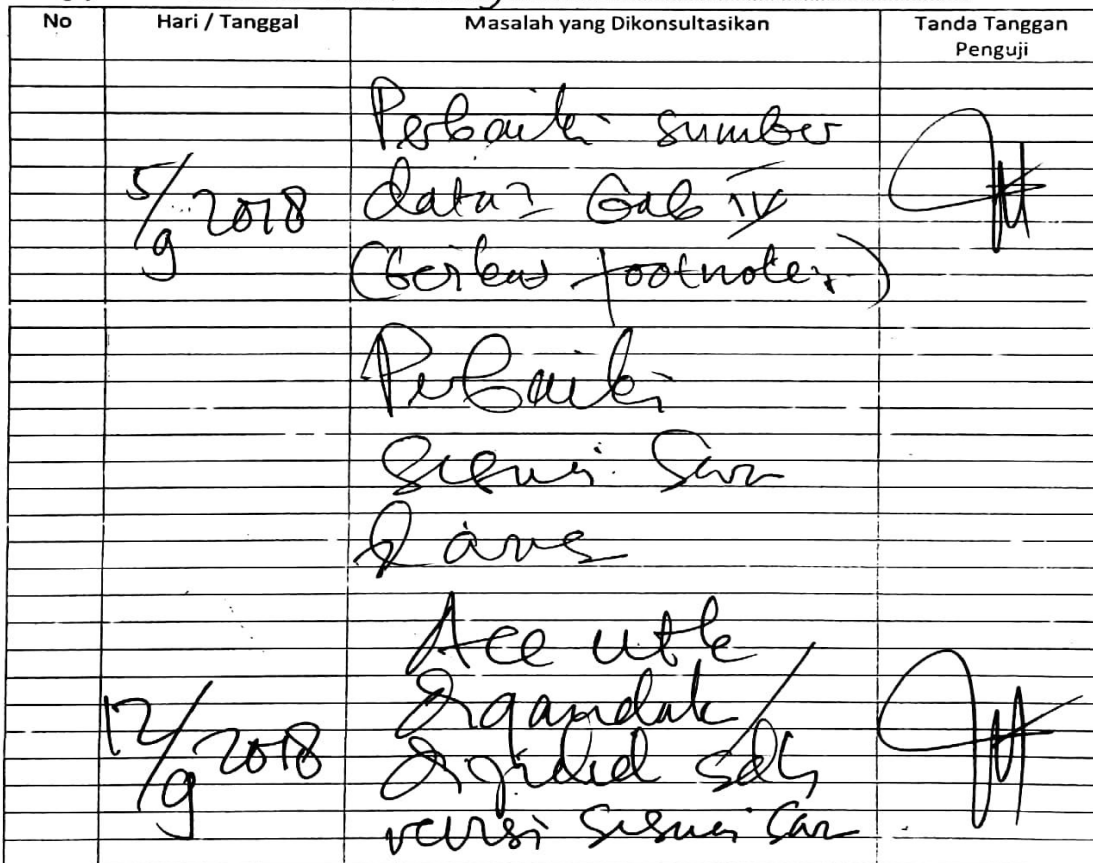 No Hari / Tanggal Masalah yang Dikonsultasikan Tanda Tanggan
Penguji
Perbaiki sumber
5/9 2018 data2 bab IV
(berikan footnote)
Perbaiki
sesuai saran
Acc utk
digandakan/
12/9 2018 dijilid sdh
revisi sesuai saran